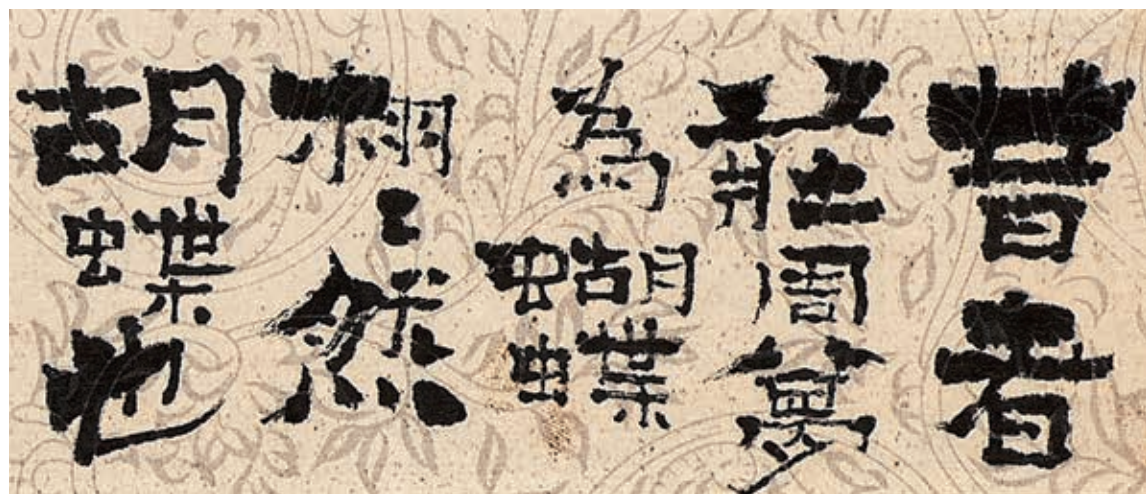 昔者
莊周夢
為蝴蝶
栩〻然
胡蝶也